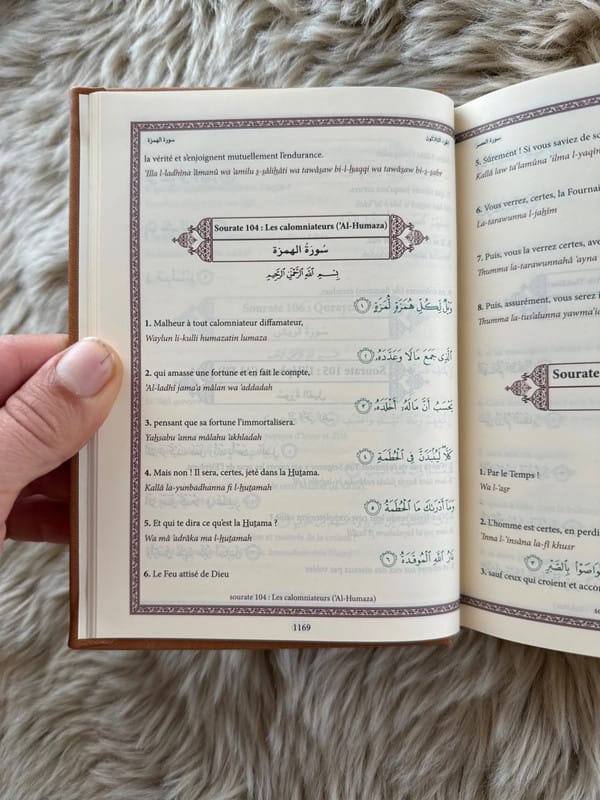 سورة الهمزة
الجزء الثلاثون
la vérité et s'enjoignent mutuellement l'endurance.
'Illa l-ladhîna 'âmanû wa 'amilu ṣ-ṣâliḥâti wa tawâṣaw bi-l-ḥaqqi wa tawâṣaw bi-ṣ-ṣabr
Sourate 104 : Les calomniateurs ('Al-Humaza)
سُورَةُ الهمزة
بِسْمِ اللَّهِ الرَّحْمَٰنِ الرَّحِيمِ
وَيْلٌ لِّكُلِّ هُمَزَةٍ لُّمَزَةٍ ١
1. Malheur à tout calomniateur diffamateur,
Waylun li-kulli humazatin lumaza
الَّذِي جَمَعَ مَالًا وَعَدَّدَهُۥ ٢
2. qui amasse une fortune et en fait le compte,
'Al-ladhi jama'a mâlan wa 'addadah
يَحْسَبُ أَنَّ مَالَهُۥٓ أَخْلَدَهُۥ ٣
3. pensant que sa fortune l'immortalisera.
Yaḥsabu 'anna mâlahu 'akhladah
كَلَّا لَيُنۢبَذَنَّ فِي الْحُطَمَةِ ٤
4. Mais non ! Il sera, certes, jeté dans la Ḥuṭama.
Kallâ la-yunbadhanna fi l-ḥuṭamah
وَمَآ أَدْرَىٰكَ مَا الْحُطَمَةُ ٥
5. Et qui te dira ce qu'est la Ḥuṭama ?
Wa mâ 'adrâka ma l-ḥuṭamah
نَارُ اللَّهِ الْمُوقَدَةُ ٦
6. Le Feu attisé de Dieu
sourate 104 : Les calomniateurs ('Al-Humaza)
1169
سورة العصر
5. Sûrement ! Si vous saviez de sc
Kallâ law ta'lamûna 'ilma l-yaqîn
6. Vous verrez, certes, la Fournai
La-tarawunna l-jaḥîm
7. Puis, vous la verrez certes, ave
Thumma la-tarawunnahâ 'ayna
8. Puis, assurément, vous serez i
Thumma la-tus'alunna yawma'i
Sourate
1. Par le Temps !
Wa l-'aṣr
2. L'homme est certes, en perdi
'Inna l-'insâna la-fî khusr
وَاصَوْا بِالصَّبْرِ ٣
3. sauf ceux qui croient et accor
so